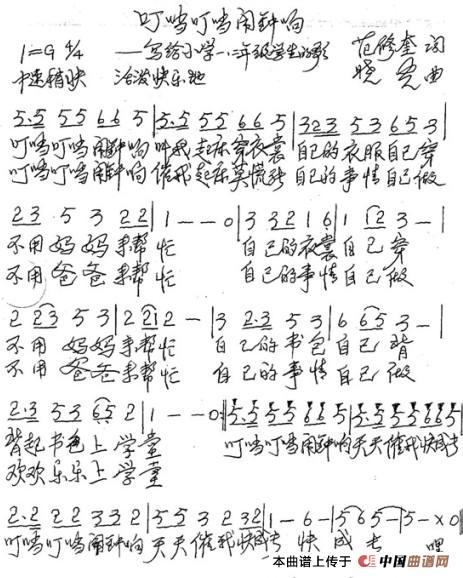 叮当叮当闹钟响
1=G 4/4 ——写给小学一、二年级学生的歌 范修奎 词
中速稍快 活泼快乐地 晓 亮 曲
5.5 55 66 5 | 5.5 55 66 5 | 323 53 65 3 |
叮当叮当闹钟响 叫我起床穿衣裳 自己的衣服自己穿
叮当叮当闹钟响 催我起床莫慌张 自己的事情自己做
23 5 3 22 | 1 - - 0 | 3 32 1 6 | 1 12 3 - |
不用妈妈来帮忙 自己的衣裳自己穿
不用爸爸来帮忙 自己的事情自己做
2 23 5 3 | 2 21 2 - | 3 2.3 5 3 | 6 65 3 - |
不用妈妈来帮忙 自己的书包自己背
不用爸爸来帮忙 自己的事情自己做
2.3 53 65 2 | 1 - - 0 | 5.5 55 66 5 | 5.5 55 66 5 |
背起书包上学堂 叮当叮当闹钟响天天催我快成长
欢欢乐乐上学堂
2.2 22 33 2 | 55 3 2 32 | 1 - 6 - | 5 6 5 - | 5 - X 0 |
叮当叮当闹钟响 天天催我快成长 快 成 长 嘿
本曲谱上传于 中国曲谱网